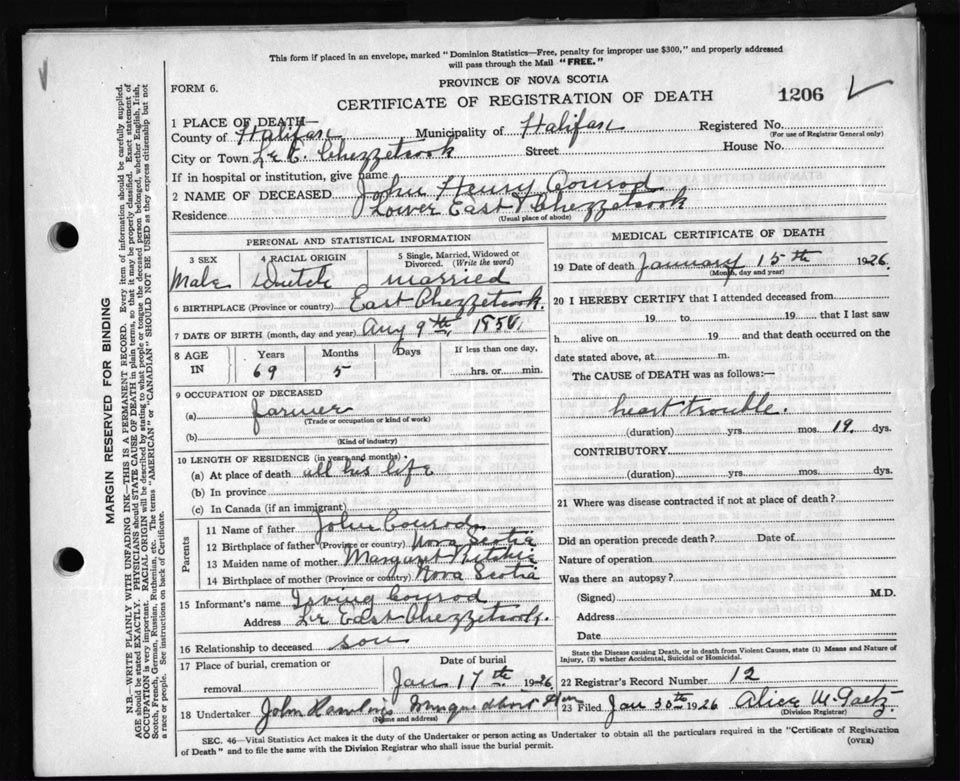 This form if placed in an envelope, marked "Dominion Statistics—Free, penalty for improper use $300," and properly addressed
will pass through the Mail "FREE."
FORM 6.
PROVINCE OF NOVA SCOTIA
CERTIFICATE OF REGISTRATION OF DEATH
1206
1 PLACE OF DEATH—
County of Halifax Municipality of Halifax Registered No.
(For use of Registrar General only)
City or Town Lr E. Chezzetcook Street House No.
If in hospital or institution, give name
2 NAME OF DECEASED John Henry Conrod
Residence Lower East Chezzetcook
(Usual place of abode)
PERSONAL AND STATISTICAL INFORMATION
3 SEX 4 RACIAL ORIGIN 5 Single, Married, Widowed or
Divorced. (Write the word)
Male Dutch married
6 BIRTHPLACE (Province or country) East Chezzetcook.
7 DATE OF BIRTH (month, day and year) Aug 9th,
8 AGE IN Years Months Days If less than one day,
69 5 hrs. or min.
9 OCCUPATION OF DECEASED
(a) farmer
(Trade or occupation or kind of work)
(b)
(Kind of industry)
10 LENGTH OF RESIDENCE (in years and months)
(a) At place of death all his life
(b) In province
(c) In Canada (if an immigrant)
Parents
11 Name of father John Conrod
12 Birthplace of father (Province or country) Nova Scotia
13 Maiden name of mother Margaret Ritchie
14 Birthplace of mother (Province or country) Nova Scotia
15 Informant's name Irving Conrod
Address Lr East Chezzetcook.
16 Relationship to deceased son
17 Place of burial, cremation or Date of burial
removal Jan 17th 1926
18 Undertaker John
(Name and address)
MEDICAL CERTIFICATE OF DEATH
19 Date of death January 15th 1926.
(Month, day and year)
20 I HEREBY CERTIFY that I attended deceased from
19 to 19 that I last saw
h alive on 19 and that death occurred on the
date stated above, at m.
The CAUSE of DEATH was as follows:—
heart trouble.
(duration) yrs. mos. 19. dys.
CONTRIBUTORY
(duration) yrs. mos. dys.
21 Where was disease contracted if not at place of death?
Did an operation precede death? Date of
Nature of operation
Was there an autopsy?
(Signed) M.D.
Address
Date
State the Disease causing Death, or in death from Violent Causes, state (1) Means and Nature of
Injury, (2) whether Accidental, Suicidal or Homicidal.
22 Registrar's Record Number 12
23 Filed Jan 30th 1926 Alice M. Gaetz
(Division Registrar)
SEC. 46—Vital Statistics Act makes it the duty of the Undertaker or person acting as Undertaker to obtain all the particulars required in the "Certificate of Registration
of Death" and to file the same with the Division Registrar who shall issue the burial permit.
(OVER)
MARGIN RESERVED FOR BINDING
N.B.—WRITE PLAINLY WITH UNFADING INK—THIS IS A PERMANENT RECORD. Every item of information should be carefully supplied.
AGE should be stated EXACTLY. PHYSICIANS should STATE CAUSE OF DEATH in plain terms, so that it may be properly classified. Exact statement of
OCCUPATION is very important. RACIAL ORIGIN will be described by stating to what people or tongue the deceased person belonged, whether English, Irish,
Scotch, French, German, Russian, Ruthenian, etc. The terms "AMERICAN" or "CANADIAN" SHOULD NOT BE USED as they express citizenship but not
a race or people. See instructions on back of Certificate.